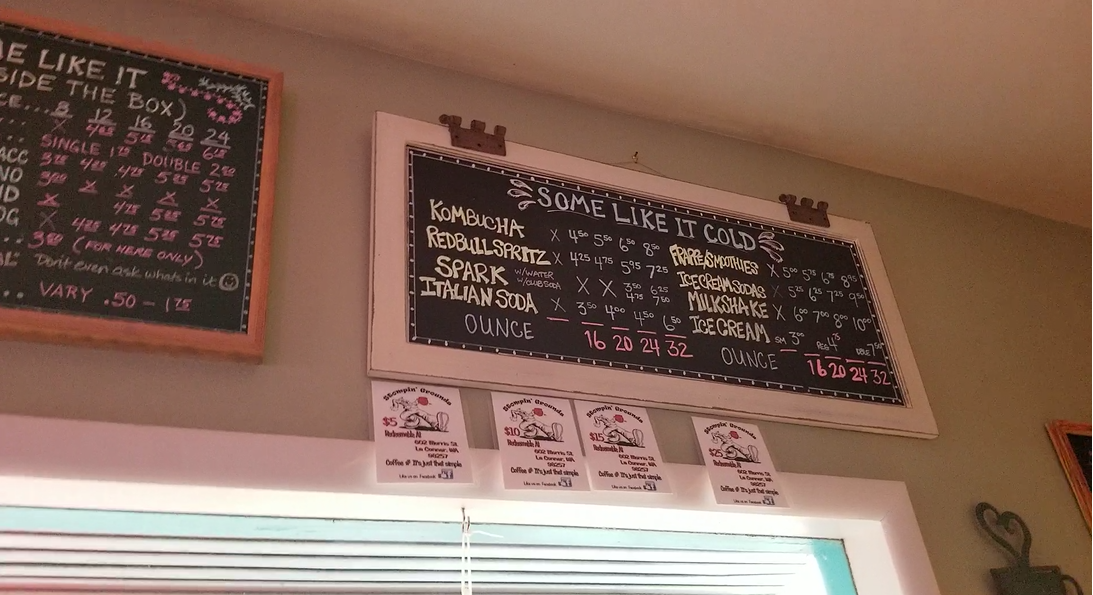 E LIKE IT
SIDE THE BOX)
CE.... 8 12 16 20 24
... X 4.25 5.25 5.65 6.25
SINGLE 1.75 DOUBLE 2.50
ACC 3.75 4.25 4.75 5.25 5.75
NO 3.00 X X X X
ND X 4.75 5.25 5.75
OG X 4.25 4.75 5.25 5.75
... 3.50 (FOR HERE ONLY)
AL: Don't even ask what's in it
... VARY .50 - 1.75
SOME LIKE IT COLD
KOMBUCHA X 4.50 5.50 6.50 8.50
REDBULL SPRITZ X 4.25 4.75 5.95 7.25
SPARK W/WATER X X 3.50 6.25
W/CLUB SODA 4.75 7.50
ITALIAN SODA X 3.50 4.00 4.50 6.50
OUNCE 16 20 24 32
FRAPPE/SMOOTHIES X 5.00 5.75 6.75 8.95
ICE CREAM SODAS X 5.25 6.25 7.25 9.50
MILKSHAKE X 6.00 7.00 8.00 10.00
ICE CREAM SM 3.00 REG 4.75 DBLE 7.50
OUNCE 16 20 24 32
Stompin' Grounds
$5
Redeemable At
602 Morris St.
La Conner, WA
98257
Coffee @ It's just that simple
Like us on Facebook
Stompin' Grounds
$10
Redeemable At
602 Morris St.
La Conner, WA
98257
Coffee @ It's just that simple
Like us on Facebook
Stompin' Grounds
$15
Redeemable At
602 Morris St.
La Conner, WA
98257
Coffee @ It's just that simple
Like us on Facebook
Stompin' Grounds
$25
Redeemable At
602 Morris St.
La Conner, WA
98257
Coffee @ It's just that simple
Like us on Facebook